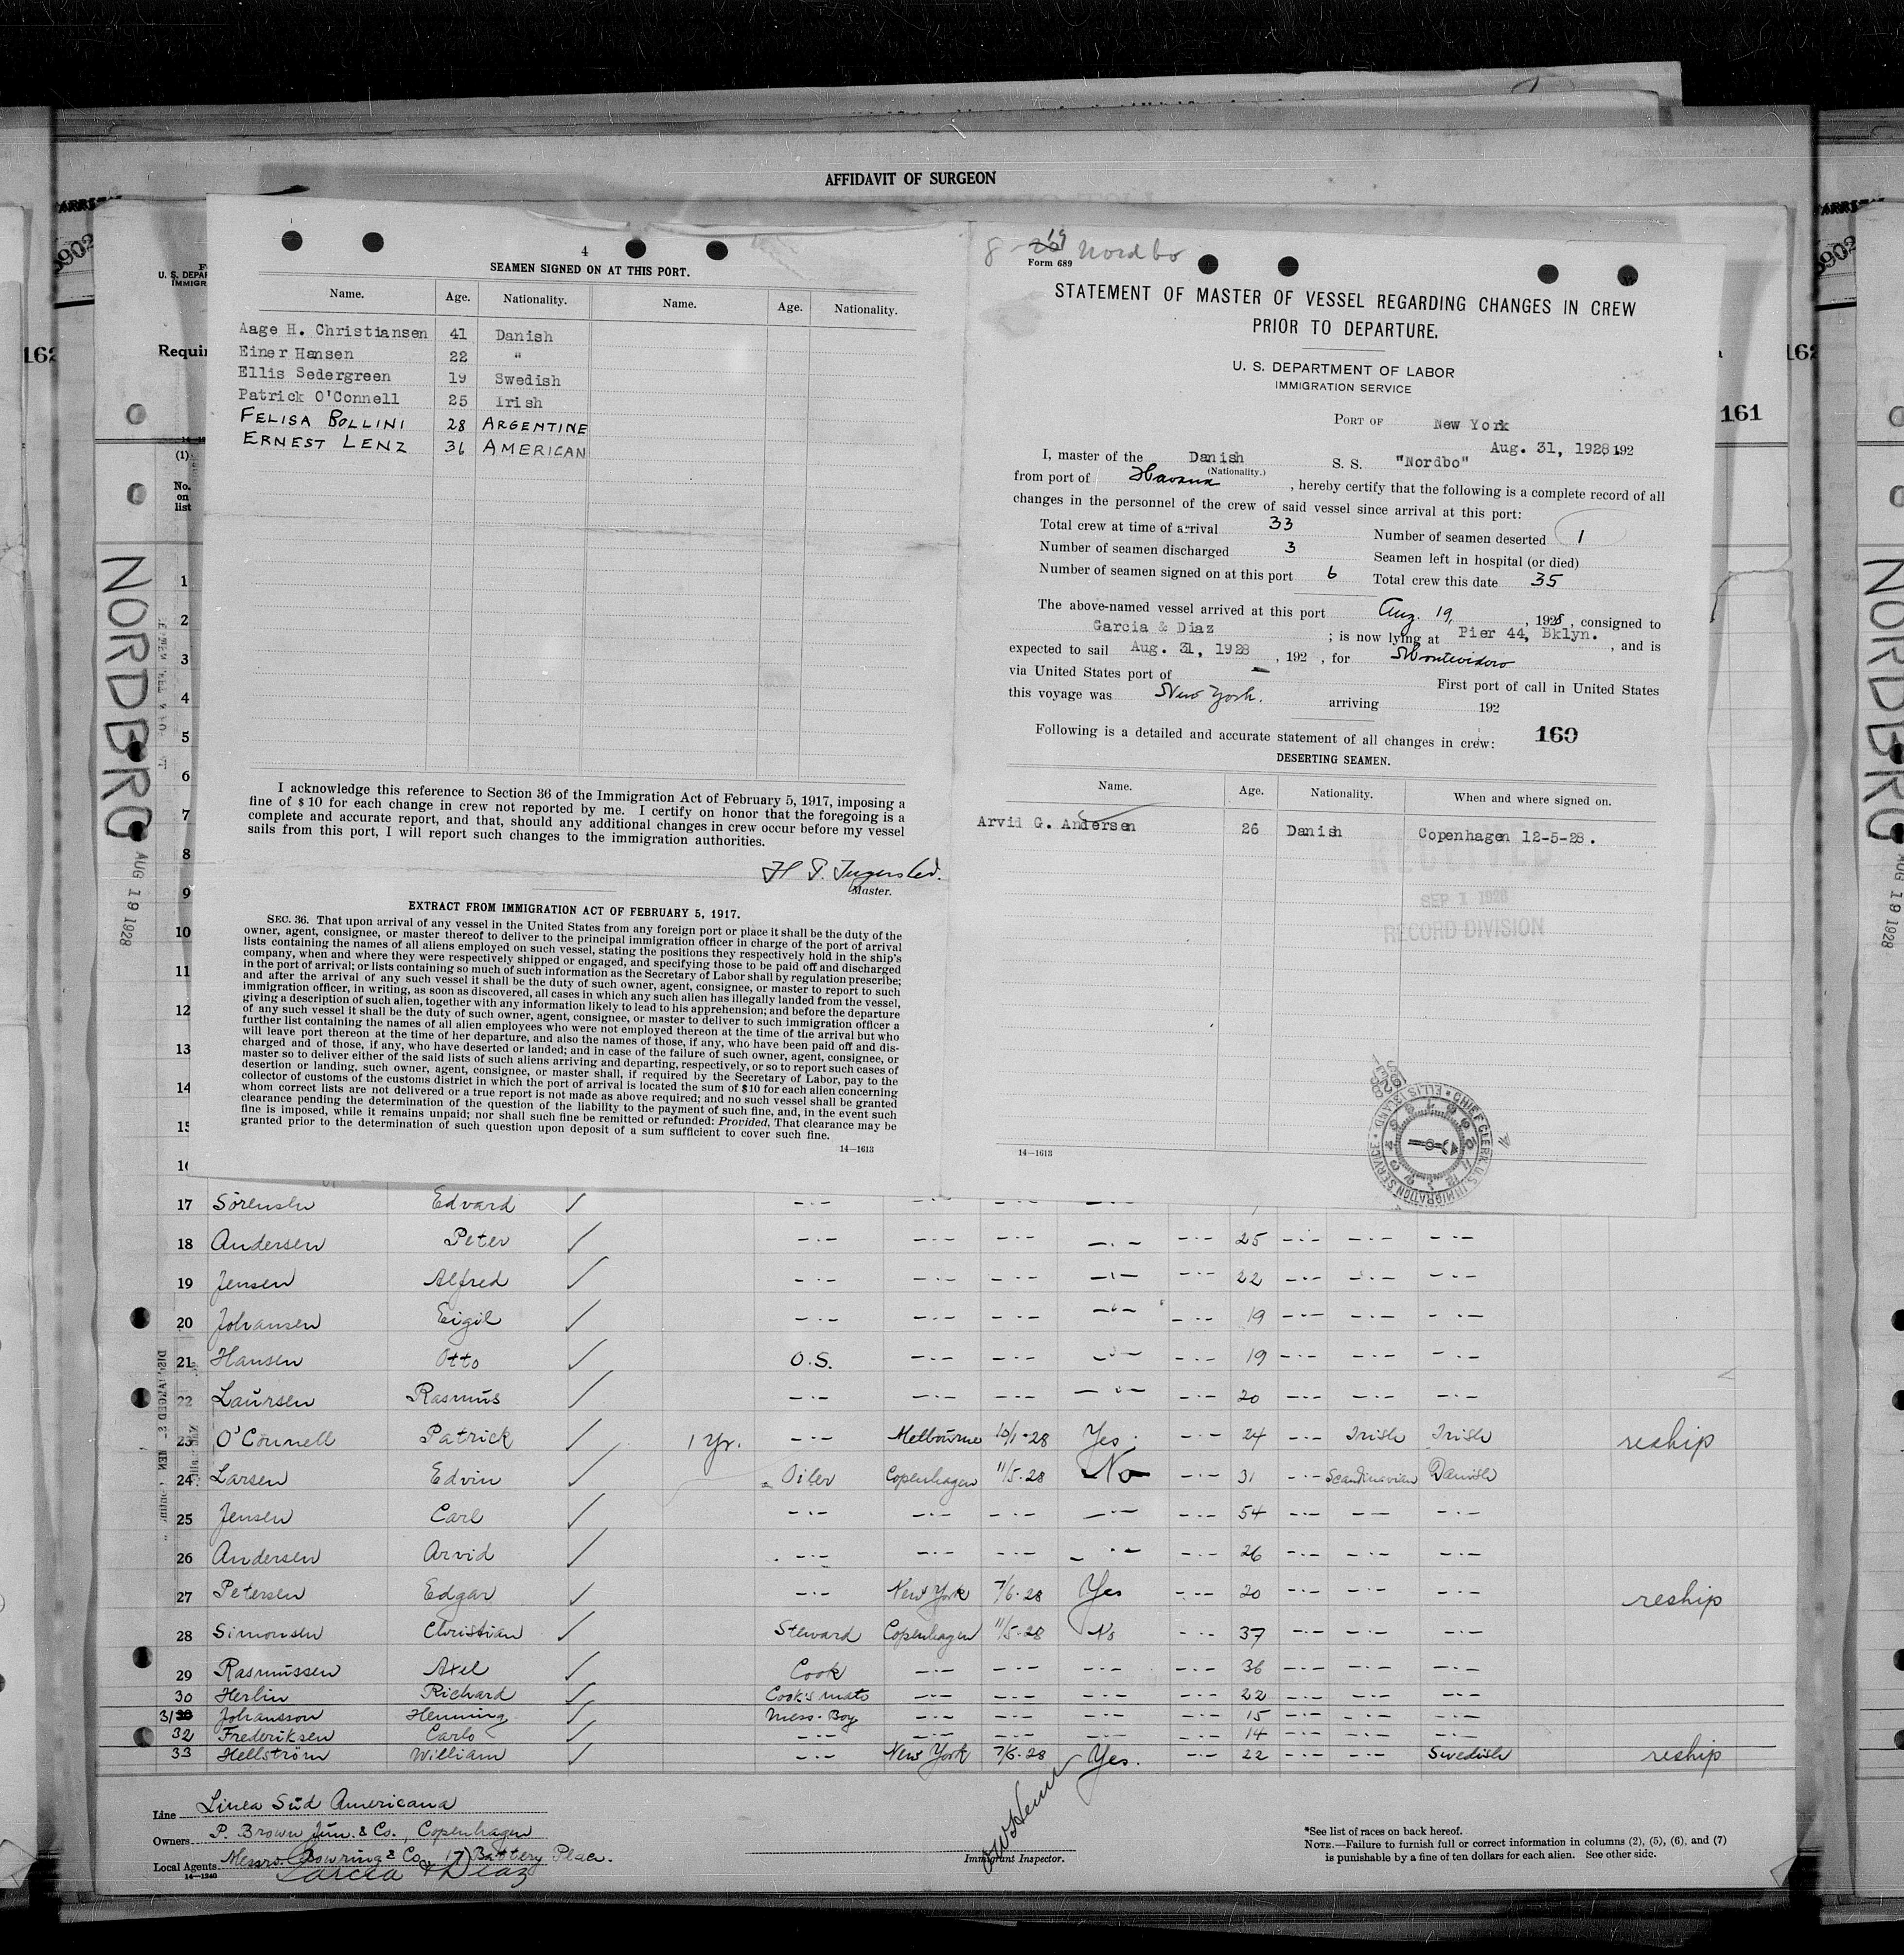 AFFIDAVIT OF SURGEON
4
SEAMEN SIGNED ON AT THIS PORT.
Name. Age. Nationality. Name. Age. Nationality.
Aage H. Christiansen 41 Danish
Einer Hansen 22 "
Ellis Sedergreen 19 Swedish
Patrick O'Connell 25 Irish
FELISA BOLLINI 28 ARGENTINE
ERNEST LENZ 31 AMERICAN
I acknowledge this reference to Section 36 of the Immigration Act of February 5, 1917, imposing a
fine of $10 for each change in crew not reported by me. I certify on honor that the foregoing is a
complete and accurate report, and that, should any additional changes in crew occur before my vessel
sails from this port, I will report such changes to the immigration authorities.
Master.
EXTRACT FROM IMMIGRATION ACT OF FEBRUARY 5, 1917.
SEC. 36. That upon arrival of any vessel in the United States from any foreign port or place it shall be the duty of the
owner, agent, consignee, or master thereof to deliver to the principal immigration officer in charge of the port of arrival
lists containing the names of all aliens employed on such vessel, stating the positions they respectively hold in the ship's
company, when and where they were respectively shipped or engaged, and specifying those to be paid off and discharged
in the port of arrival; or lists containing so much of such information as the Secretary of Labor shall by regulation prescribe;
and after the arrival of any such vessel it shall be the duty of such owner, agent, consignee, or master to report to such
immigration officer, in writing, as soon as discovered, all cases in which any such alien has illegally landed from the vessel,
giving a description of such alien, together with any information likely to lead to his apprehension; and before the departure
of any such vessel it shall be the duty of such owner, agent, consignee, or master to deliver to such immigration officer a
further list containing the names of all alien employees who were not employed thereon at the time of the arrival but who
will leave port thereon at the time of her departure, and also the names of those, if any, who have been paid off and dis-
charged and of those, if any, who have deserted or landed; and in case of the failure of such owner, agent, consignee, or
master so to deliver either of the said lists of such aliens arriving and departing, respectively, or so to report such cases of
desertion or landing, such owner, agent, consignee, or master shall, if required by the Secretary of Labor, pay to the
collector of customs of the customs district in which the port of arrival is located the sum of $10 for each alien concerning
whom correct lists are not delivered or a true report is not made as above required; and no such vessel shall be granted
clearance pending the determination of the question of the liability to the payment of such fine, and, in the event such
fine is imposed, while it remains unpaid; nor shall such fine be remitted or refunded: Provided, That clearance may be
granted prior to the determination of such question upon deposit of a sum sufficient to cover such fine.
14—1613
8 - 19 Nordbo
Form 689
STATEMENT OF MASTER OF VESSEL REGARDING CHANGES IN CREW
PRIOR TO DEPARTURE.
U. S. DEPARTMENT OF LABOR
IMMIGRATION SERVICE
PORT OF New York
Aug. 31, 1928, 192
I, master of the Danish S. S. "Nordbo"
(Nationality.)
from port of Havana, hereby certify that the following is a complete record of all
changes in the personnel of the crew of said vessel since arrival at this port:
Total crew at time of arrival 33 Number of seamen deserted 1
Number of seamen discharged 3 Seamen left in hospital (or died)
Number of seamen signed on at this port 6 Total crew this date 35
The above-named vessel arrived at this port Aug. 19, 1928, consigned to
Garcia & Diaz; is now lying at Pier 44, Bklyn., and is
expected to sail Aug. 31, 1928, 192 , for Montevideo
via United States port of — First port of call in United States
this voyage was New York. arriving 192
Following is a detailed and accurate statement of all changes in crew: 160
DESERTING SEAMEN.
Name. Age. Nationality. When and where signed on.
Arvid G. Andersen 26 Danish Copenhagen 12-5-28.
RECEIVED
SEP 1 1928
RECORD DIVISION
CHIEF CLERK, U.S. IMMIGRATION SERVICE ELLIS ISLAND
14—1613
161
162
162
NORDBRG
AUG 19 1928
NORDBRG
AUG 19 1928
U. S. DEPAR
IMMIGR
Requir
(1)
No.
on
list
1
2
3
4
5
6
7
8
9
10
11
12
13
14
15
17 Sörensen Edvard ✓ —·— —·— —·— —
18 Andersen Peter ✓ —·— —·— —·— —·— —·— 25 —·— —·— —·—
19 Jensen Alfred ✓ —·— —·— —·— —·— —·— 22 —·— —·— —·—
20 Johansen Eigil ✓ —·— —·— —·— —·— —·— 19 —·— —·— —·—
21 Hansen Otto ✓ O.S. —·— —·— —·— —·— 19 —·— —·— —·—
22 Laursen Rasmus ✓ —·— —·— —·— —·— —·— 20 —·— —·— —·—
23 O'Connell Patrick ✓ 1 Yr. —·— Melbourne 10/1-28 Yes. —·— 24 —·— Irish Irish reship
24 Larsen Edvin ✓ Oiler Copenhagen 11/5-28 No —·— 31 —·— Scandinavian Danish
25 Jensen Carl ✓ —·— —·— —·— —·— —·— 54 —·— —·— —·—
26 Andersen Arvid ✓ —·— —·— —·— —·— —·— 26 —·— —·— —·—
27 Petersen Edgar ✓ —·— New York 7/6-28 Yes —·— 20 —·— —·— —·— reship
28 Simonsen Christian ✓ Steward Copenhagen 11/5-28 No —·— 37 —·— —·— —·—
29 Rasmussen Axel ✓ Cook —·— —·— —·— —·— 36 —·— —·— —·—
30 Herlin Richard ✓ Cook's mate —·— —·— —·— —·— 22 —·— —·— —·—
31 Johansson Henning ✓ Mess-Boy —·— —·— —·— —·— 15 —·— —·— —·—
32 Frederiksen Carlo ✓ —·— —·— —·— —·— —·— 14 —·— —·— —·—
33 Hellström William ✓ —·— New York 7/6-28 Yes. —·— 22 —·— —·— Swedish reship
Line Linea Süd Americana
Owners P. Brown Jun. & Co., Copenhagen
Local Agents Messrs. Bowring & Co 17 Battery Place.
14—1240
Garcia & Diaz
Immigrant Inspector.
*See list of races on back hereof.
NOTE.—Failure to furnish full or correct information in columns (2), (5), (6), and (7)
is punishable by a fine of ten dollars for each alien. See other side.